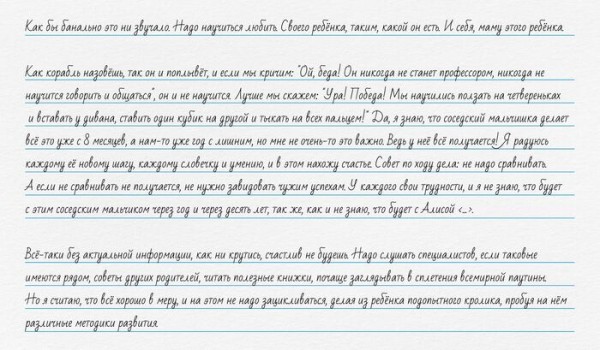 Как бы банально это ни звучало. Надо научиться любить. Своего ребёнка, таким, какой он есть. И себя, маму этого ребёнка.
Как корабль назовёшь, так он и поплывёт, и если мы кричим: "Ой, беда! Он никогда не станет профессором, никогда не
научится говорить и общаться", он и не научится. Лучше мы скажем: "Ура! Победа! Мы научились ползать на четвереньках
и вставать у дивана, ставить один кубик на другой и тыкать на всех пальцем!" Да, я знаю, что соседский мальчишка делает
всё это уже с 8 месяцев, а нам-то уже год с лишним, но мне не очень-то это важно. Ведь у неё всё получается! Я радуюсь
каждому её новому шагу, каждому словечку и умению, и в этом нахожу счастье. Совет по ходу дела: не надо сравнивать.
А если не сравнивать не получается, не нужно завидовать чужим успехам. У каждого свои трудности, и я не знаю, что будет
с этим соседским мальчиком через год и через десять лет, так же, как и не знаю, что будет с Алисой <...>.
Всё-таки без актуальной информации, как ни крутись, счастлив не будешь. Надо слушать специалистов, если таковые
имеются рядом, советы других родителей, читать полезные книжки, почаще заглядывать в сплетения всемирной паутины.
Но я считаю, что всё хорошо в меру, и на этом не надо зацикливаться, делая из ребёнка подопытного кролика, пробуя на нём
различные методики развития.